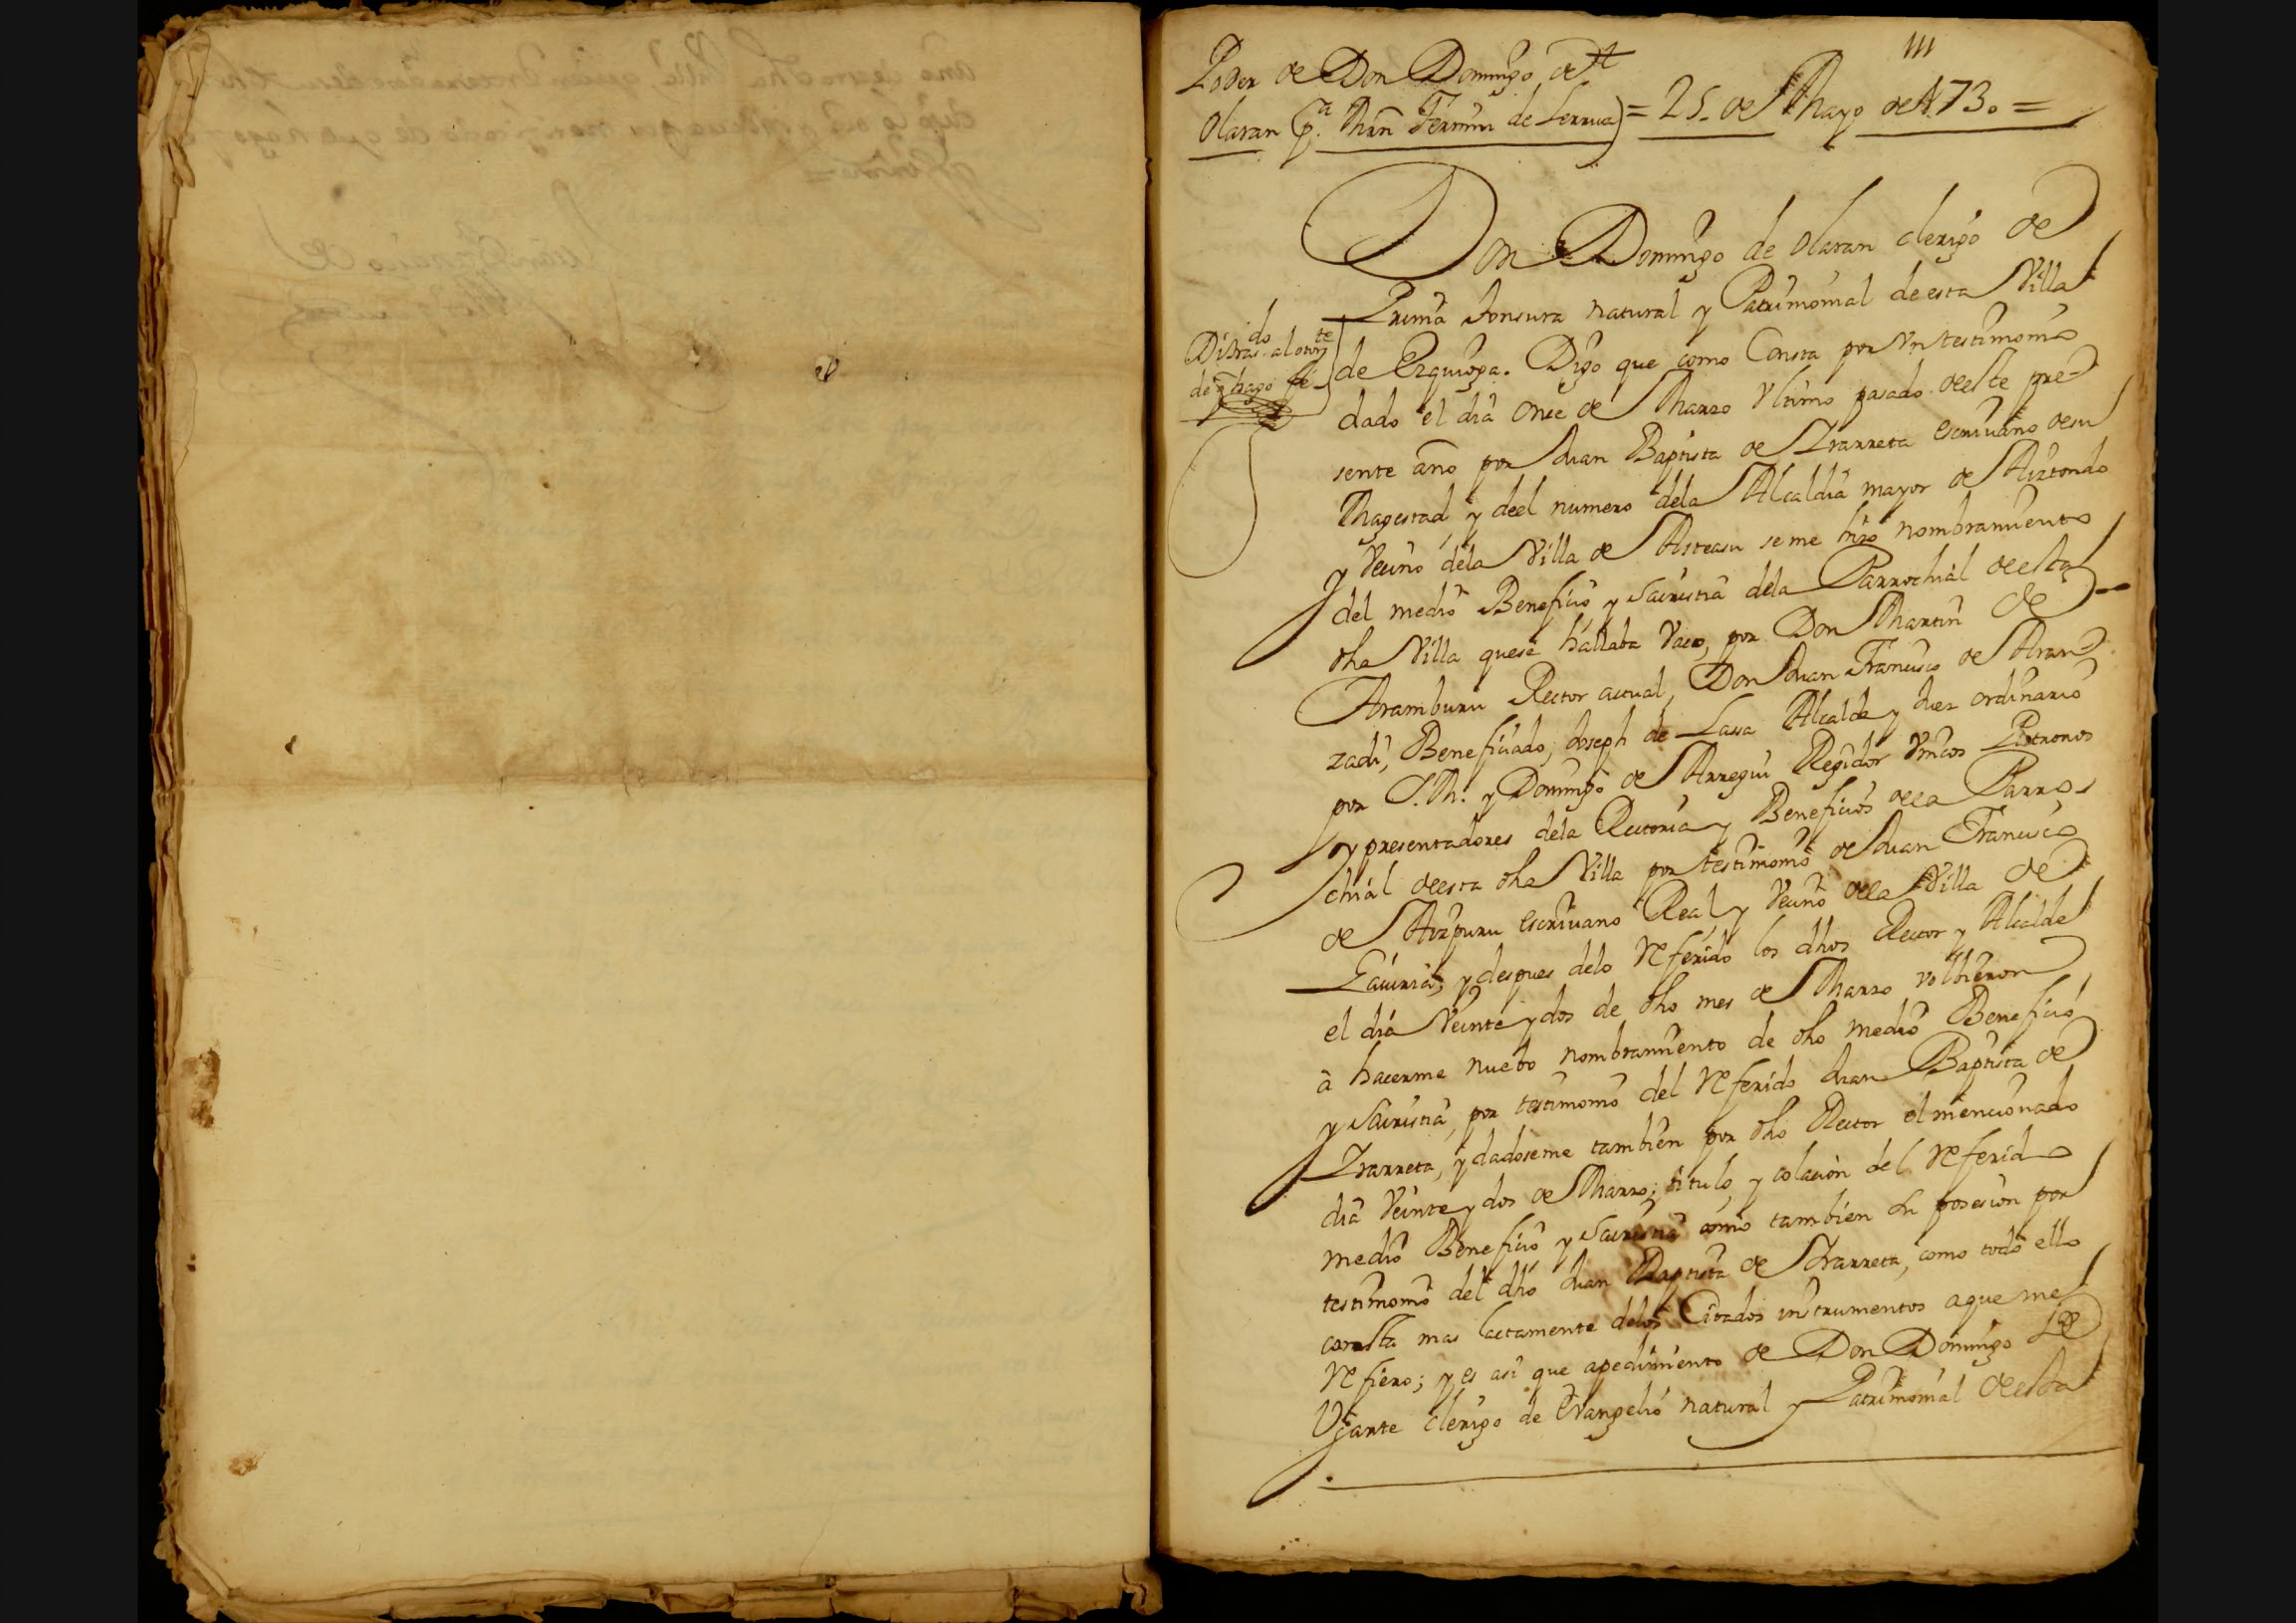 111
Poder de Don Domingo de
Olaran p.ª Mrn Fermin de Lerrua = 25. de Mayo de 1730 =
Don Domingo de Olaran clerigo de
Prima tonsura natural y Patrimonial de esta Villa
de Ezquioga. Digo que como Consta por Vn testimonio
dado el dia once de Marzo Vltimo pasado deeste pre-
sente año por Juan Baptista de Irarreta escriuano desu
Magestad, y deel numero dela Alcaldia mayor de Aiztondo
y Vecino dela Villa de Asteasu se me hizo nombramiento
del medio Beneficio y sacristia dela Parrochial deesta
dha Villa quese hallaba Vaco, por Don Martin de
Aramburu Rector actual, Don Juan Francisco de Aran-
zadi, Beneficiado, Joseph de Lasa Alcalde y Juez ordinario
por S.M. y Domingo de Arregui Regidor Vnicos Patronos
y presentadores dela Rectoria y Beneficios dela Parro-
chial deesta dha Villa por testimonio de Juan Francisco
de Aizpuru escriuano Real, y Vecino dela Villa de
Gauiria; y despues delo referido los dhos Rector y Alcalde
el dia Veinte y dos de dho mes de Marzo volbieron
à hacerme nuebo nombramiento de dho medio Beneficio
y Sacristia, por testimonio del referido Juan Baptista de
Irarreta, y dadoseme tambien por dho Rector el mencionado
dia Veinte y dos de Marzo; titulo, y colacion del referido
medio Beneficio y Sacristia como tambien la posesion por
testimonio del dho Juan Baptista de Irarreta, como todo ello
consta mas lactamente delos Citados instrumentos a que me
refiero; y es asi que a pedimiento de Don Domingo de
Vgarte clerigo de Evangelio natural y Patrimonial deesta
do te
Di tras. al otorg
de q hago fee